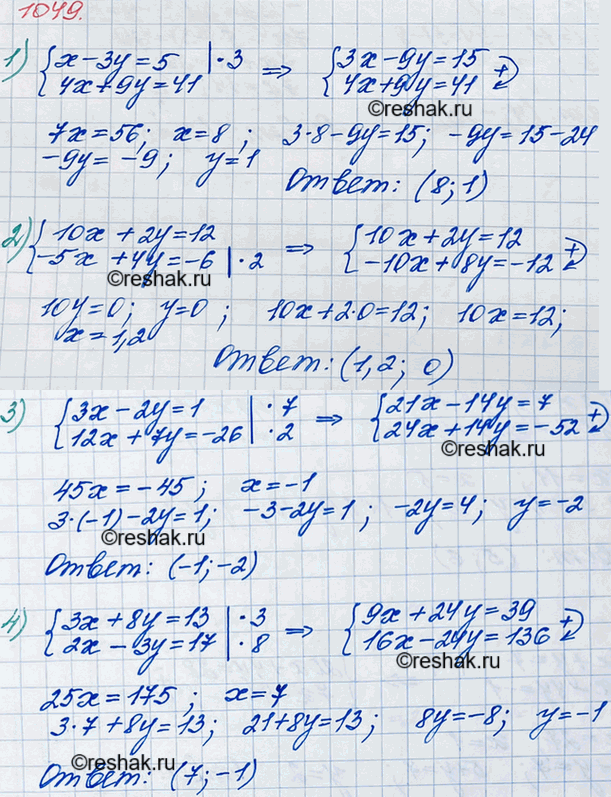 1049.
1) { x-3y=5 | ·3 ⇒ { 3x-9y=15
4x+9y=41 4x+9y=41 +
©reshak.ru
7x=56; x=8; 3·8-9y=15; -9y=15-24
-9y=-9; y=1
Ответ: (8;1)
2) { 10x+2y=12 ⇒ { 10x+2y=12
-5x+4y=-6 | ·2 -10x+8y=-12 +
©reshak.ru
10y=0; y=0; 10x+2·0=12; 10x=12;
x=1,2
Ответ: (1,2; 0)
3) { 3x-2y=1 | ·7 ⇒ { 21x-14y=7
12x+7y=-26 | ·2 24x+14y=-52 +
©reshak.ru
45x=-45; x=-1
3·(-1)-2y=1; -3-2y=1; -2y=4; y=-2
©reshak.ru
Ответ: (-1;-2)
4) { 3x+8y=13 | ·3 ⇒ { 9x+24y=39
2x-3y=17 | ·8 16x-24y=136 +
©reshak.ru
25x=175; x=7
3·7+8y=13; 21+8y=13; 8y=-8; y=-1
©reshak.ru
Ответ: (7;-1)